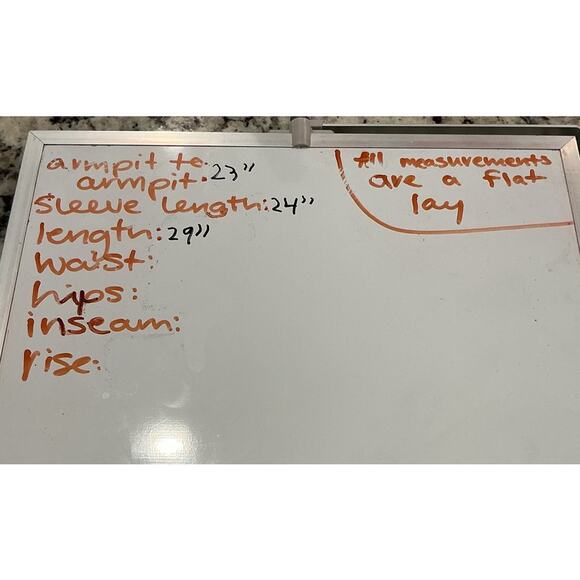 armpit to
armpit: 23"
sleeve length: 24"
length: 29"
waist:
hips:
inseam:
rise:
All measurements
are a flat
lay